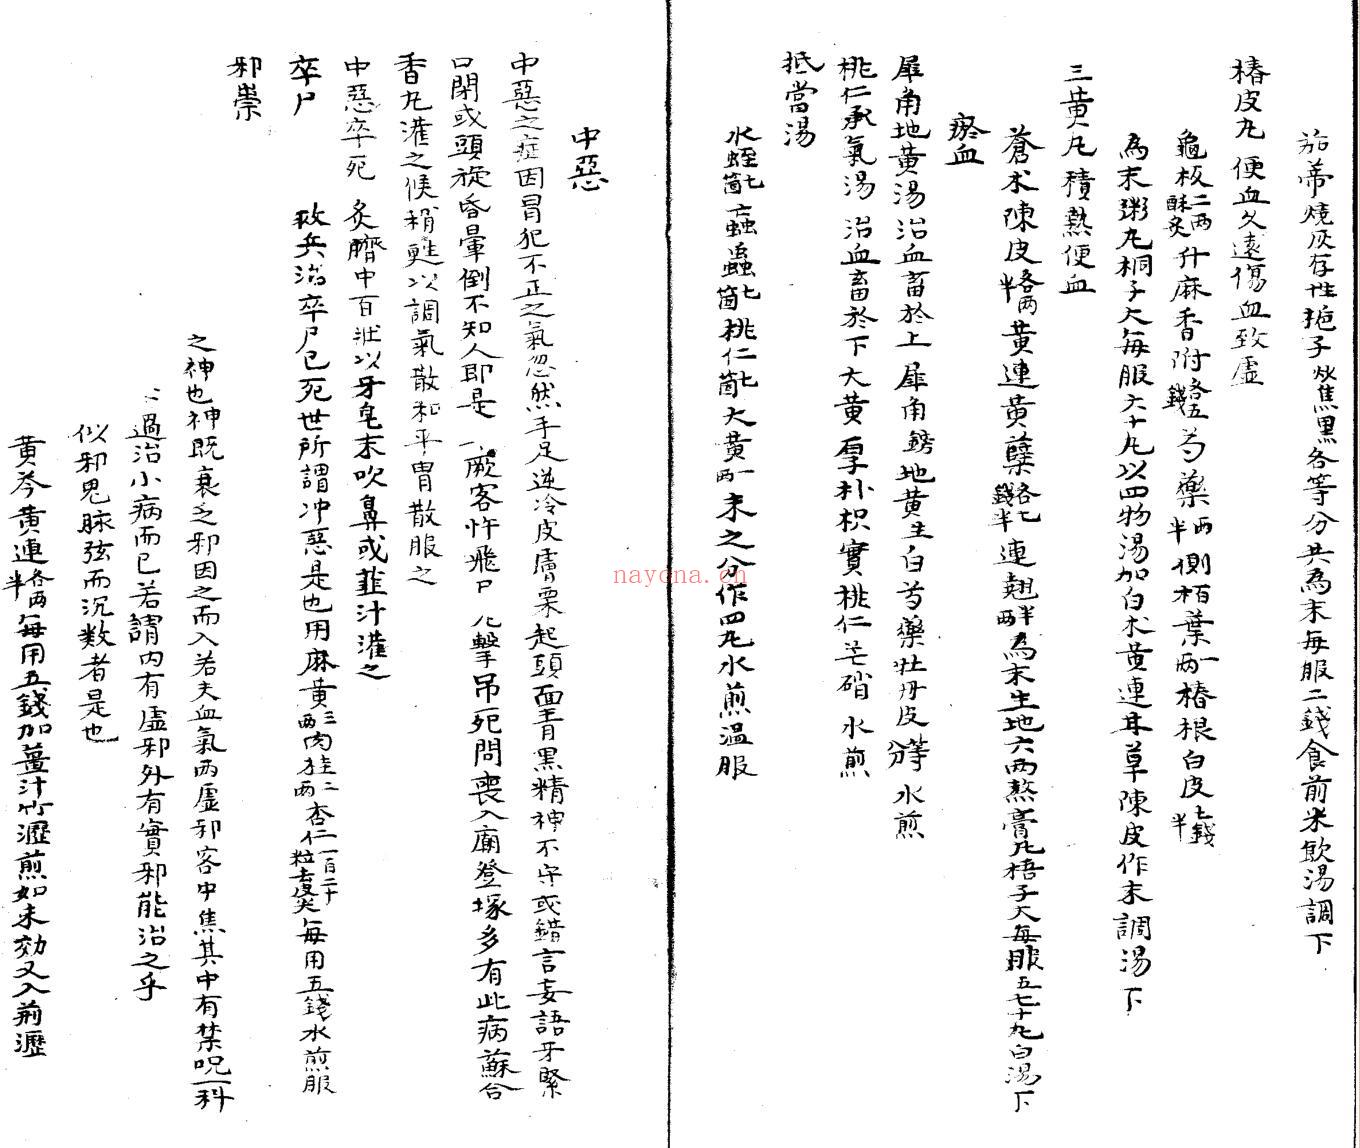 茄蒂燒灰存性梔子炒焦黑各等分共為末每服二錢食前米飲湯調下
椿皮丸 便血久遠傷血致虛
龜板二兩酥炙升麻香附各五錢芍藥兩半側栢葉一兩椿根白皮七錢半
為末粥丸桐子大每服六十丸以四物湯加白朮黃連甘草陳皮作末調湯下
三黃丸 積熱便血
蒼朮陳皮各兩半黃連黃蘗各七錢半連翹半兩為末生地六兩熬膏丸梧子大每服五七十丸白湯下
瘀血
犀角地黃湯 治血畜於上 犀角鎊地黃生白芍藥牡丹皮等分 水煎
桃仁承氣湯 治血畜於下 大黃厚朴枳實桃仁芒硝 水煎
抵當湯
水蛭七箇蝱蟲七箇桃仁七箇大黃一兩 末之分作四丸水煎溫服
中惡
中惡之症因冒犯不正之氣忽然手足逆冷皮膚粟起頭面青黑精神不守或錯言妄語牙緊
口閉或頭旋昏暈倒不知人即是 厥客忤飛尸 擊吊死問喪入廟登塚多有此病蘇合
香丸灌之候稍甦以調氣散和平胃散服之
中惡卒死 炙臍中百壯以牙皂末吹鼻或韮汁灌之
卒尸 救兵治卒尸已死世所謂冲惡是也用麻黃三兩肉桂二兩杏仁一百二十粒去皮尖每用五錢水煎服
邪祟
之神也神既衰乏邪因之而入若夫血氣兩虛邪客中焦其中有禁呪一科
過治小病而已若謂內有虛邪外有實邪能治之乎
似邪鬼脉弦而沉数者是也
黃芩黃連各兩半每用五錢加薑汁竹瀝煎如未効又入荊瀝
nayona.cn